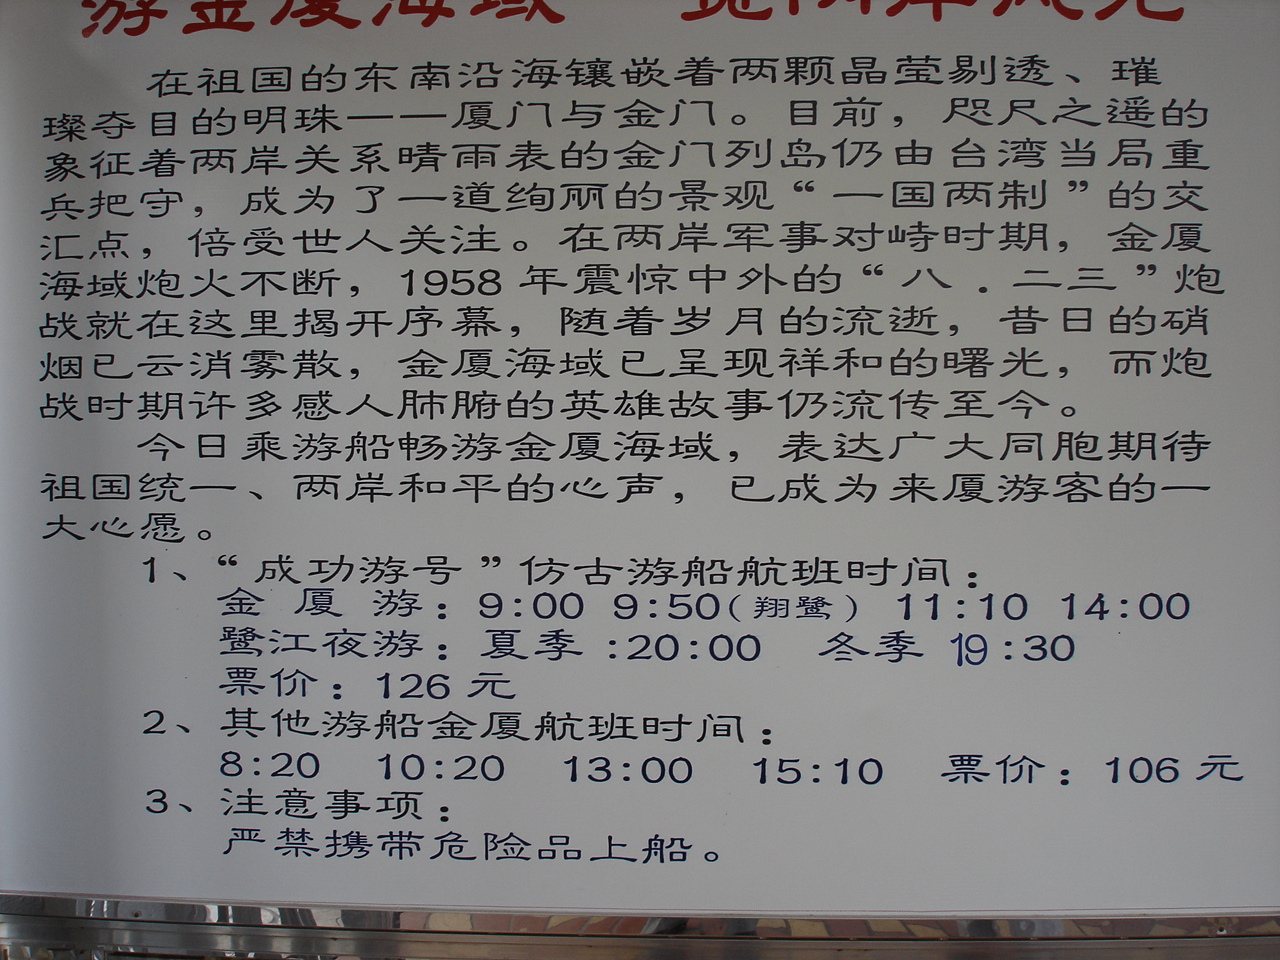 游金厦海域 览两岸风光
在祖国的东南沿海镶嵌着两颗晶莹剔透、璀
璨夺目的明珠——厦门与金门。目前，咫尺之遥的
象征着两岸关系晴雨表的金门列岛仍由台湾当局重
兵把守，成为了一道绚丽的景观“一国两制”的交
汇点，倍受世人关注。在两岸军事对峙时期，金厦
海域炮火不断，1958年震惊中外的“八．二三”炮
战就在这里揭开序幕，随着岁月的流逝，昔日的硝
烟已云消雾散，金厦海域已呈现祥和的曙光，而炮
战时期许多感人肺腑的英雄故事仍流传至今。
今日乘游船畅游金厦海域，表达广大同胞期待
祖国统一、两岸和平的心声，已成为来厦游客的一
大心愿。
1、“成功游号”仿古游船航班时间：
金 厦 游：9:00 9:50(翔鹭) 11:10 14:00
鹭江夜游：夏季 :20:00 冬季 19:30
票价：126元
2、其他游船金厦航班时间：
8:20 10:20 13:00 15:10 票价：106元
3、注意事项：
严禁携带危险品上船。